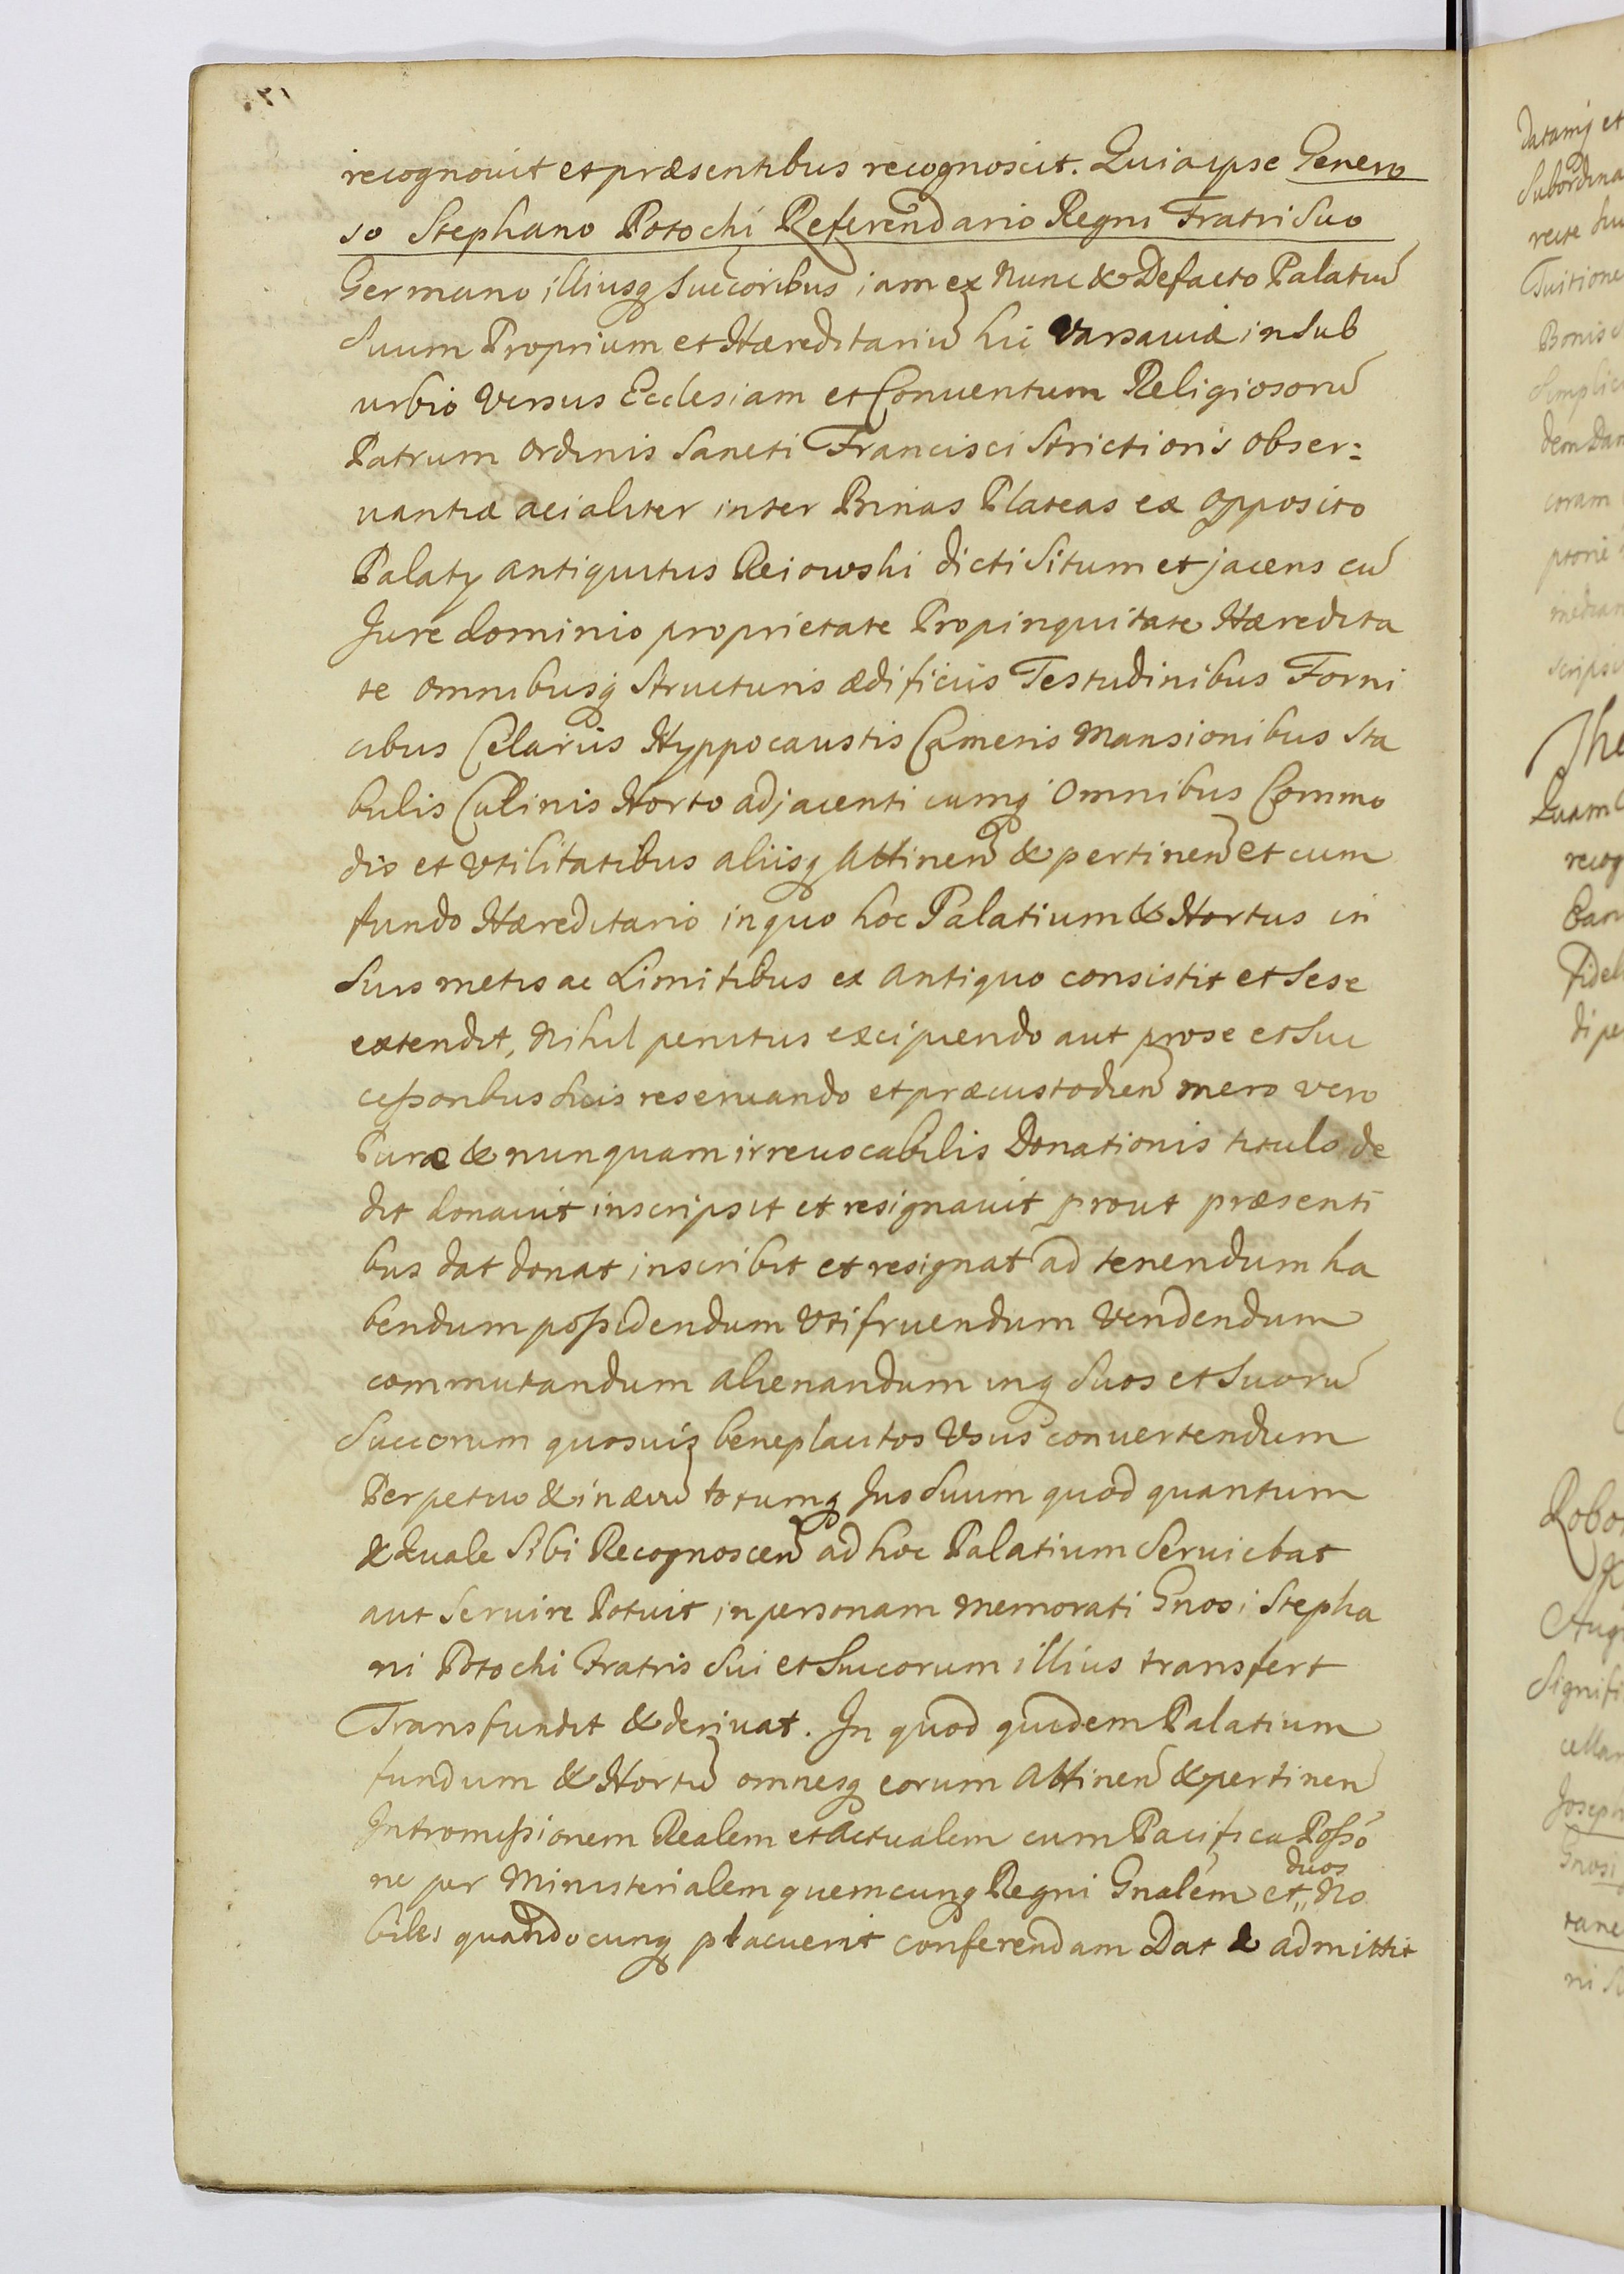 recognouit et præsentibus recognoscit. Quia ipse Genero
so Stephano Potocki Referendario Regni Fratri Suo
Germano illiusq Succoribus iam ex Nunc & Defacto Palatiũ
Suum Proprium et Hæreditariũ hic Varsauiæ in Sub
urbio Versus Ecclesiam et Conuentum Religiosorũ
Patrum Ordinis Sancti Francisci Strictioris Obser:
uantiæ acialiter inter Binas Plateas ex Opposito
Palaty antiquitus Reiowski dicti Situm et jacens cũ
Jure dominio proprietate Propinquitate Hæredita
te Omnibusq Structuris ædificiis Testudinibus Forni
cibus Celariis Hyppocaustis Cameris Mansionibus Sta
bulis Culinis Horto adjacenti cumq Omnibus Commo
dis et Vtilitatibus aliisq Attineñ & pertineñ et cum
fundo Hæreditario in quo hoc Palatium & Hortus in
Suis metis ac Limitibus ex antiquo consistit et Sese
extendit, Nihil penitus excipiendo aut pro se et Suc
ceßoribus Suis reseruando et præcustodieñ mero vero
Puræ & nunquam irreuocabilis Donationis titulo de
dit donauit inscripsit et resignauit prout præsenti
bus dat donat inscribit et resignat ad tenendum ha
bendum poßidendum Vtifruendum Vendendum
commutandum alienandum inq Suos et Suorũ
Succorum quosuis beneplacitos Vsus conuertendum
Perpetuo & in æuũ totumq Jus Suum quod quantum
& Quale Sibi Recognosceñ ad hoc Palatium Seruiebat
aut Seruire Potuit in personam memorati Gnosi Stepha
ni Potocki Fratris Sui et Succorum illius transfert
Transfundit & deriuat. In quod quidem Palatium
fundum & Hortũ omnesq eorum Attineñ & pertineñ
Intromißionem Realem et Actualem cum Pacifica Poßo
ne per Ministerialem quemcunq Regni Gnalem et duos No
biles quandocunq placuerit conferendam Dat & admittit